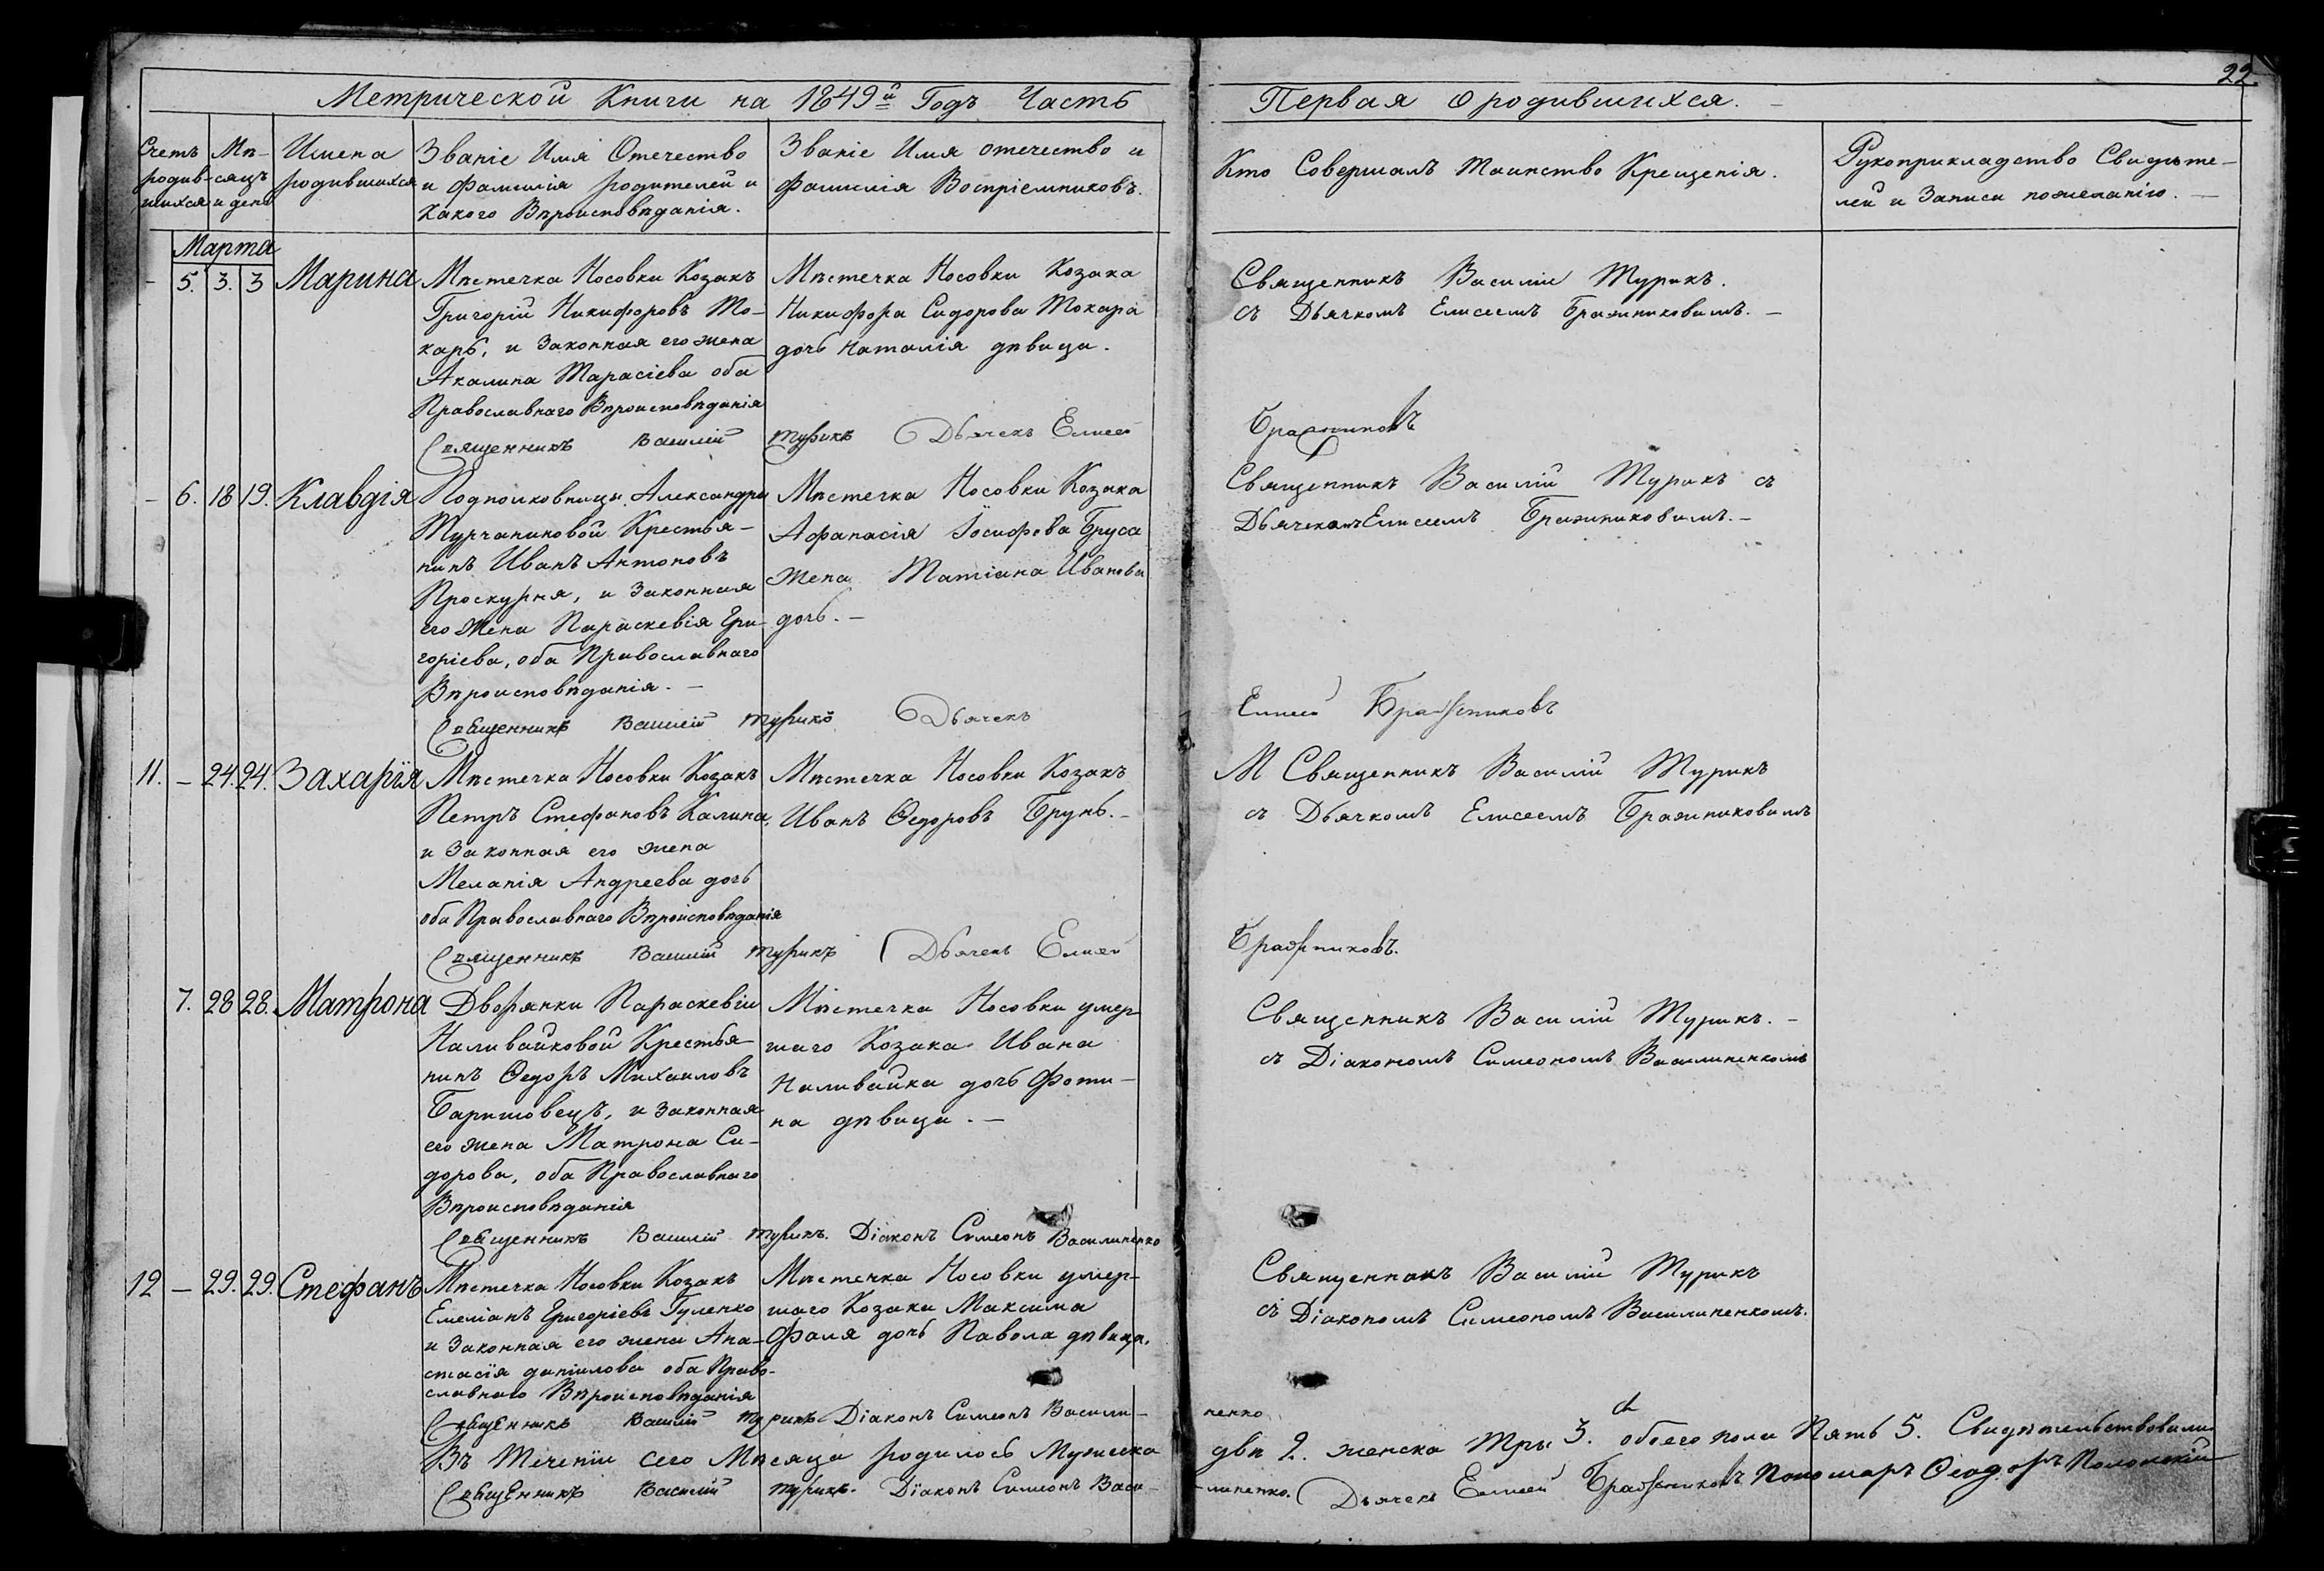 22.
Метрической Книги на 1849й Годъ Часть
Первая о родившихся. –
Счетъ родив-шихся
Мѣ-сяцъ и день
Имена родившихся
Званіе Имя Отечество
и фамилія родителей и
какого Вѣроисповѣданія.
Званіе Имя отечество и
фамилія Воспріемниковъ.
Кто Совершалъ Таинство Крещенія.
Рукоприкладство Свидѣте-
лей и Записи пожеланію. –
Марта
– 5. 3. 3 Марина
Мѣстечка Носовки Козакъ
Григорій Никифоровъ То-
карь, и Законная его жена
Акалина Тарасіева оба
Православнаго Вѣроисповѣданія
Мѣстечка Носовки Козака
Никифора Сидорова Токара
дочь Наталія дѣвица.
Священникъ Василій Турикъ.
съ Дьячкомъ Елисеемъ Бражниковимъ. –
Священникъ Василій Турикъ Дьячекъ Елисей
Бражниковъ
– 6. 18 19. Клавдія
Подполковницы Александры
Турчаниковой Крестья-
нинъ Иванъ Антоновъ
Проскурня, и Законная
его Жена Параскевія Гри-
горіева, оба Православнаго
Вѣроисповѣданія. –
Мѣстечка Носовки Козака
Афанасія Іосифова Бруса
жена Татіана Иванова
дочь. –
Священникъ Василій Турикъ съ
Дьячекомъ Елисеемъ Бражниковимъ. –
Священникъ Василій Турикъ Дьячекъ
Елисей Бражниковъ
11. – 24. 24. Захарія
Мѣстечка Носовки Козакъ
Петръ Стефановъ Калина,
и Законная его жена
Меланія Андреева дочь
оба Православнаго Вѣроисповѣданія
Мѣстечка Носовки Козакъ
Иванъ Ѳедоровъ Брунь. –
М Священникъ Василій Турикъ
съ Дьячкомъ Елисеемъ Бражниковимъ
Священникъ Василій Турикъ Дьячекъ Елисей
Бражниковъ.
7. 28 28. Матрона
Дворянки Параскевіи
Наливайковой Крестья-
нинъ Ѳедоръ Михаиловъ
Баришовецъ, и Законная
его жена Матрона Си-
дорова, оба Православнаго
Вѣроисповѣданія
Мѣстечка Носовки умер-
шаго Козака Ивана
Наливайка дочь Фоти-
на дѣвица. –
Священникъ Василій Турикъ. –
съ Діакономъ Симеономъ Василиненкомъ
Священникъ Василій Турикъ. Діаконъ Симеонъ Василиненко
12 – 29. 29. Стефанъ
Мѣстечка Носовки Козакъ
Емеліанъ Григоріевъ Гуленко
и Законная его жена Ана-
стасія даніилова оба Право-
славнаго Вѣроисповѣданія
Мѣстечка Носовки умер-
шаго Козака Максима
Фаля дочь Павола дѣвица.
Священникъ Василій Турикъ
съ Діакономъ Симеономъ Василиненкомъ.
Священникъ Василій Турикъ Діаконъ Симеонъ Васили-
ненко
Въ Теченіи сего Мѣсяца родилось Мужеска
двѣ 2. женска Три 3. обоего пола Пять 5. Свидѣтельствовали
Священникъ Василій Турикъ. Діаконъ Симеонъ Васи-
-линенко. Дьячекъ Елисей Бражниковъ Пономарь Ѳеодоръ Полонскій